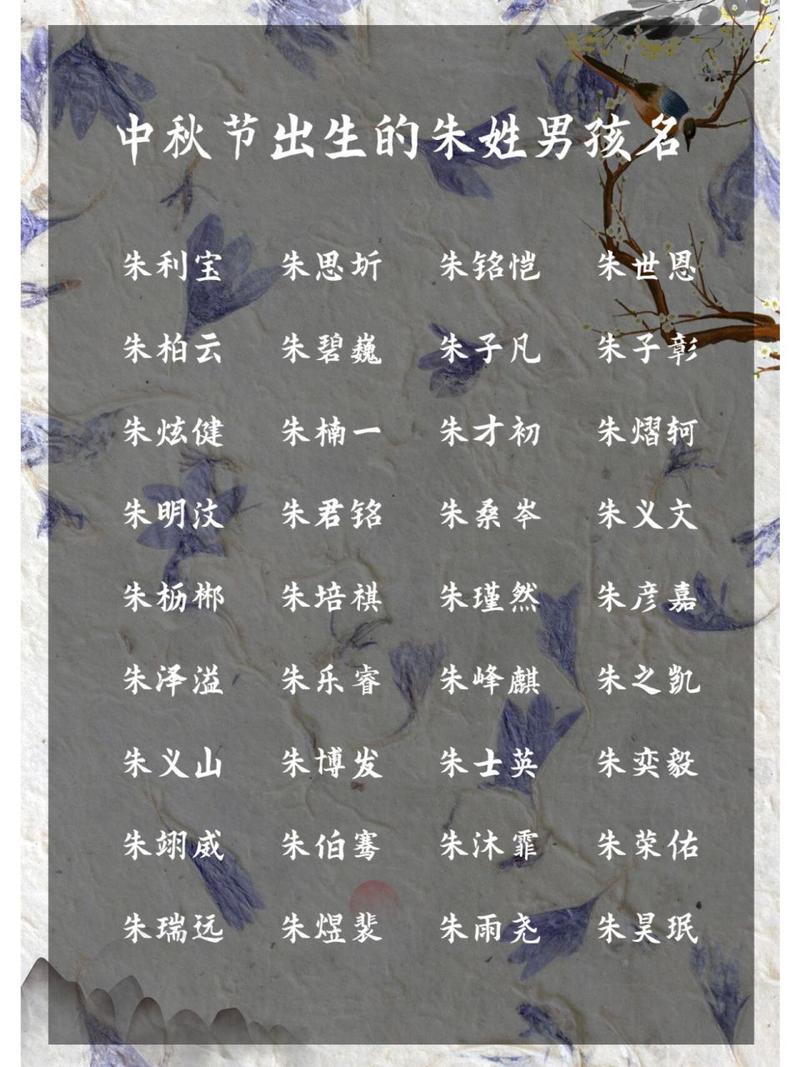 中秋节出生的朱姓男孩名
朱利宝 朱思圻 朱铭恺 朱世恩
朱柏云 朱碧巍 朱子凡 朱子彰
朱炫健 朱楠一 朱才初 朱熠轲
朱明汶 朱君铭 朱桑岑 朱义文
朱枥郴 朱培祺 朱瑾然 朱彦嘉
朱泽溢 朱乐睿 朱峰麒 朱之凯
朱义山 朱博发 朱士英 朱奕毅
朱翊威 朱伯骞 朱沐霏 朱荣佑
朱瑞远 朱煜裴 朱雨尧 朱昊珉